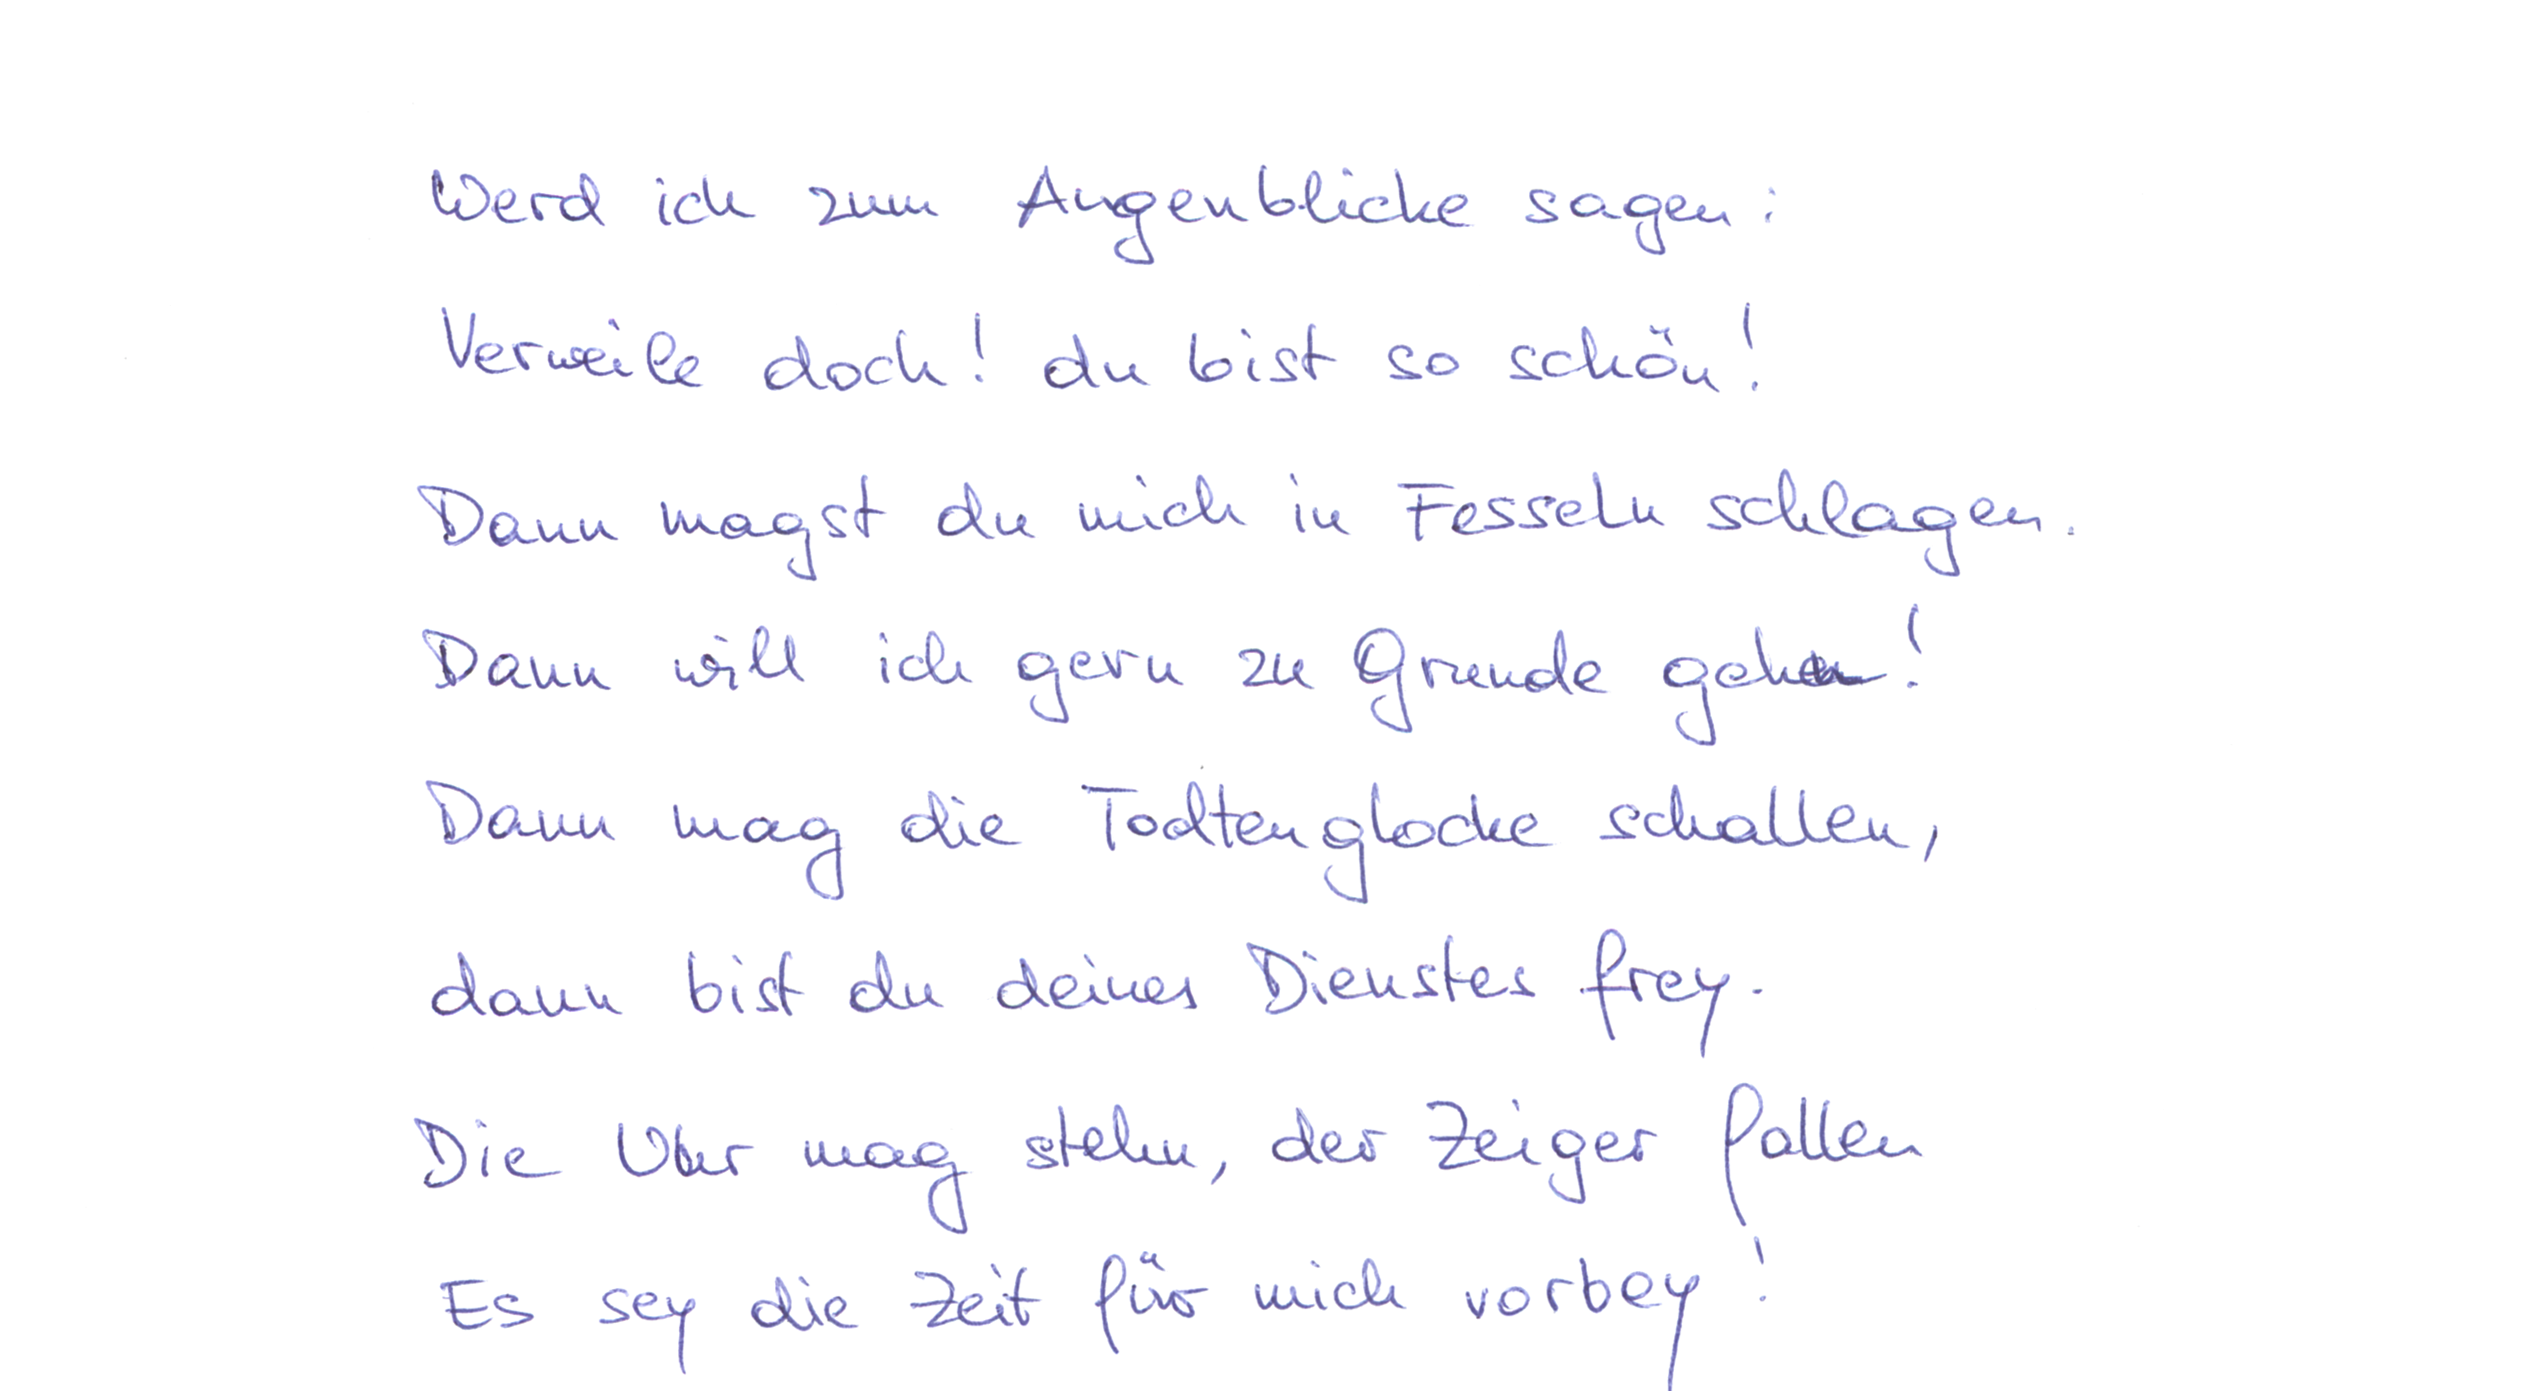 Werd ich zum Augenblicke sagen:
Verweile doch! du bist so schön!
Dann magst du mich in Fesseln schlagen.
Dann will ich gern zu Grunde gehn!
Dann mag die Todtenglocke schallen,
dann bist du deines Dienstes frey.
Die Uhr mag stehn, der Zeiger fallen
Es sey die Zeit für mich vorbey!